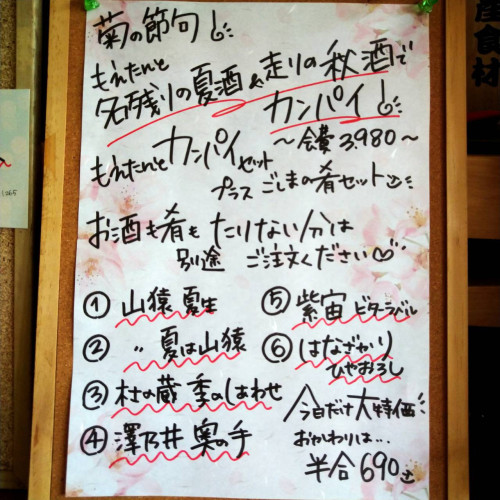 菊の節句
もえたんと
名残りの夏酒&走りの秋酒で
カンパイ
~会費3,980~
もえたんとカンパイセット
プラスごしまの肴セット
お酒も肴もたりない分は
別途ご注文ください♡
① 山猿 夏生
② 〃 夏は山猿
③ 杜の蔵 季のしあわせ
④ 澤乃井 奥の手
⑤ 紫宙 ビターラベル
⑥ はなざかり
ひやおろし
今日だけ大特価!
おかわりは…
半合690
産食材